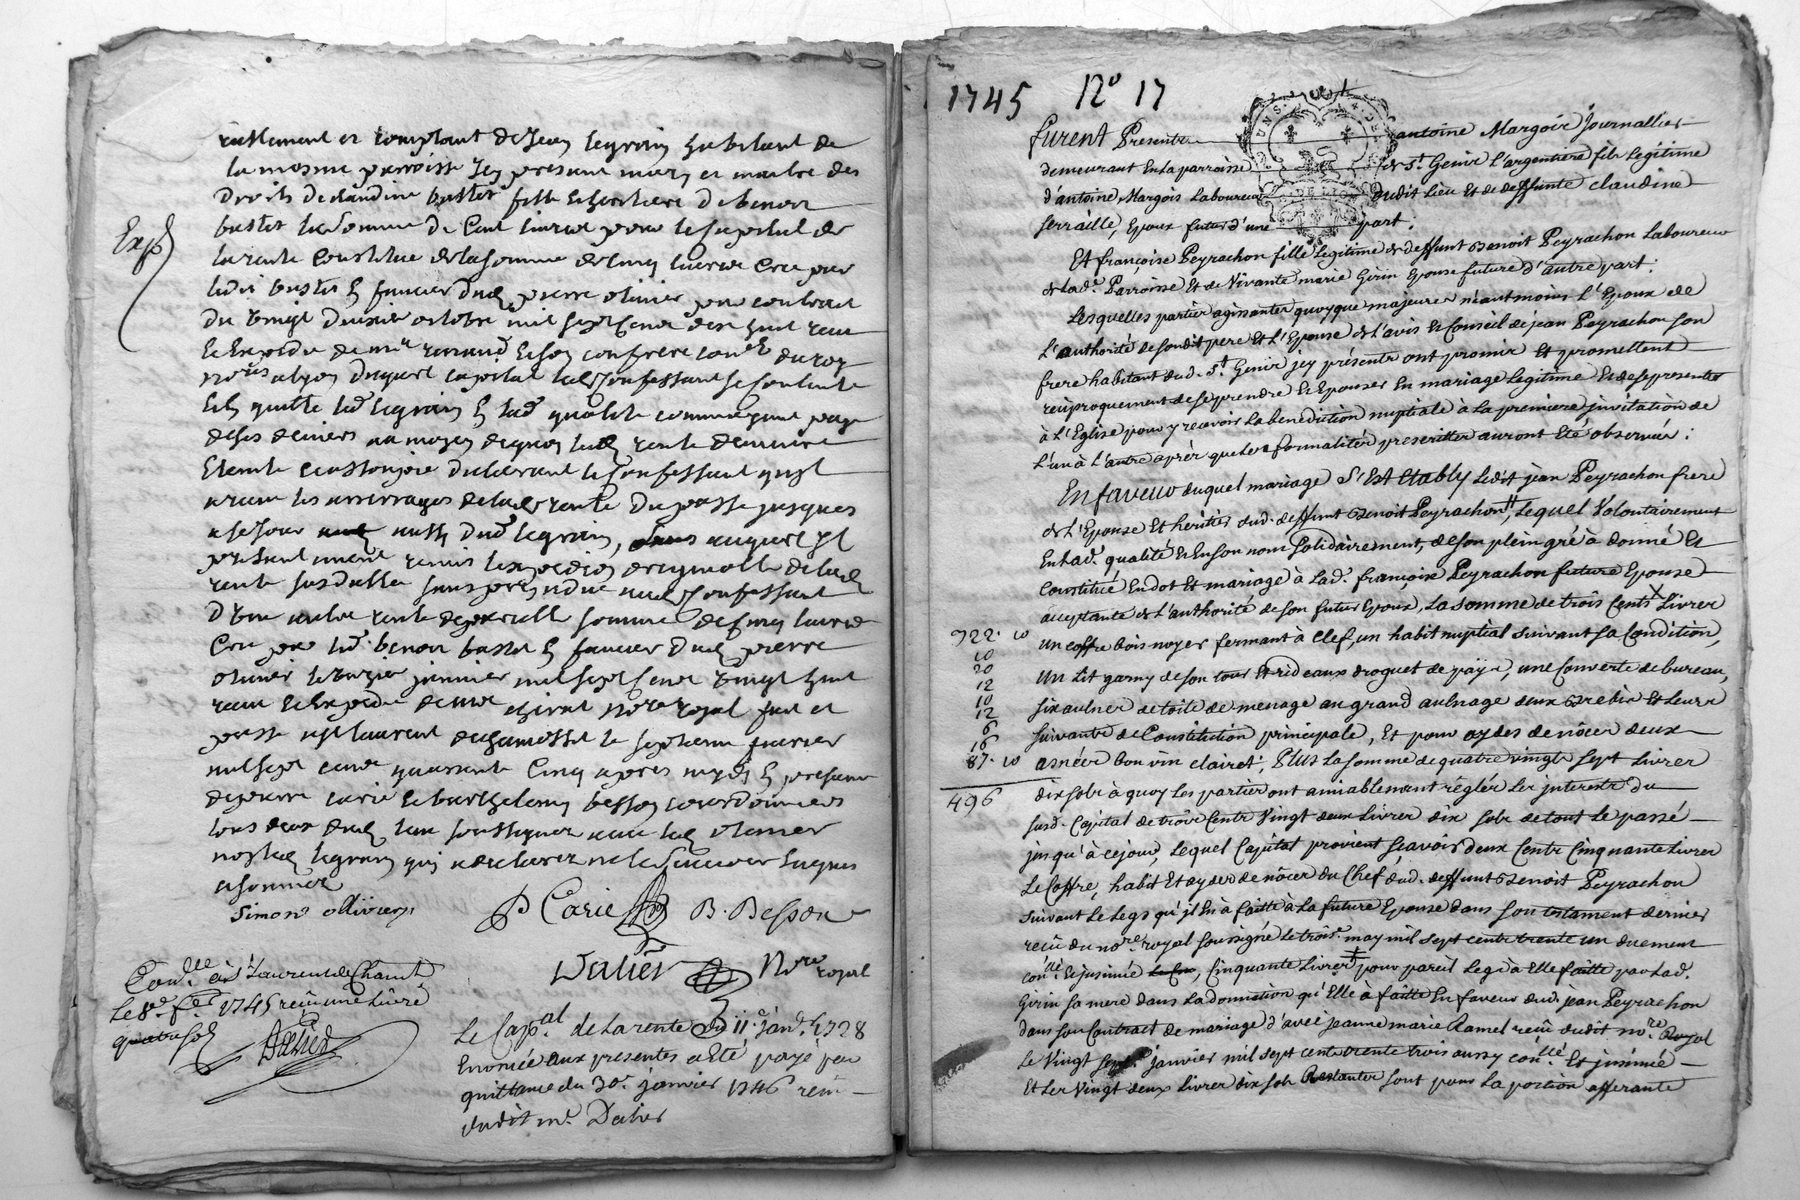 reellement et comptant de Jean legrain habitant de
la mesme parroisse Icy present mary et maistre des
Droits de claudine bastet fille et heritiere de benoit
bastet la somme de Cent livres pour le capital de
la rente Constituée de la somme de cinq livres Crée par
ledit bastet en faveur dud pierre olivier par contract
Du vingt deux octobre mil sept cent dix huit receu
Exp
et Expedié de me renaud et son confrere coners du roy
nores a lyon duquel capital led confessant se contente
Et en quitte led legrain en lad qualité comme ayant paye
de ses deniers au moyen de quoy lad rente demeure
Eteinte
avant les arrerages de lad rente du passé jusques
a ce jour aussy dud legrain, auquel il
present remis l'expedion originelle de lad
rente sus datte sans prejudice aud confessant
D'une autre rente de pareille somme de cinq livres
Crée par led benoit bastet en faveur dud pierre
olivier le onzie janvier mil sept cent vingt huit
receu et Expedié nore royal fait et
passé a st laurent de chamosset le septieme fevrier
mil sept cent quarante Cinq apres midy en presence
de pierre carie et barthelemy besson cordonniers
tous deux dud lieu soussignes avec led olivier
non led legrain qui a declaré ne le scavoir Enquis
et sommé
Simond ollivier
P Carie B. Besson
Dalier Nore royal
Conllé à St Laurent de Chamt
Le 8e. fer 1745 reçu une livre
quatre sols
Dalier
Le Capal de la rente du 11e janv. 1728
Enoncée aux presentes a eté payé par
quittance du 30e. janvier 1746 reçu
dudit me. Dalier
1745 No 17
Furent Presents antoine Margoir Journallier
demeurant En la parroisse de St. Genis l'argentiere fils legitime
d'antoine Margois Laboureur dudit lieu Et de deffunte claudine
ferraille, Epoux futur d'une part;
Et françoise Peyrachon fille legitime de deffunt Benoit Peyrachon Laboureur
de lad. Parroisse Et de Vivante marie Girin Epouse future d'autre part;
Lesquelles parties agissantes quoyque majeures néantmoins l'Epoux de
L'authorité de son dit pere Et l'Epouse de l'avis et Conseil de jean Peyrachon son
frere habitant dud. St. Genis jcy présents ont promis Et promettent
reciproquement de se prendre et Epouser En mariage legitime et de se presenter
à l'Eglise pour y recevoir la bénédiction nuptiale à la premiere jnvitation de
L'un à l'autre après que les formalités prescrittes auront Eté observées;
En faveur duquel mariage s'Est Etably Ledit jean Peyrachon frere
de l'Epouse Et heritier dud. deffunt Benoit Peyrachon, Lequel Volontairement
En lad. qualité et En son nom Solidairement, de son plein gré a donné Et
Constitué En dot Et mariage à lad. françoise Peyrachon future Epouse
acceptante de l'authorité de son futur Epoux, La somme de trois Cents Livres
722. 10
un coffre bois noyer fermant à clef, un habit nuptial suivant sa Condition,
10
20
Un Lit garny de son tour Et rideaux droguet de païs, une Couverte de bureau,
12
10
six aulnes de toile de menage au grand aulnage deux Brebis Et leurs
12
6
suivants de Constitution principale, Et pour aydes de nôces deux
16
87. 10
asnées bon vin clairet; Plus La somme de quatre vingts sept Livres
496
dix sols à quoy Les parties ont amiablement réglés les jnterests du
susd. Capital de trois Cents Vingt deux livres dix sols de tout le passé
jusqu'à ce jour, Lequel Capital provient sçavoir deux Cents Cinquante Livres
Le Coffre, habit Et aydes de nôces du Chef dud. deffunt Benoit Peyrachon
suivant Le Legs qu'jl En a faitte à La future Epouse dans son testament dernier
reçu du nore. royal soussigné le trois. may mil sept cents trente un duement
conllé et jnsinué, Cinquante Livres pour pareil Legs à Elle faitte par Lad.
Girin sa mere dans La donnation qu'Elle a faitte En faveur dud. jean Peyrachon
dans son Contract de mariage d'avec jeanne marie Ramel reçu dudit nore Royal
Le Vingt sept janvier mil sept cents trente trois aussy conllé Et jnsinué
Et Les Vingt deux Livres dix sols Restantes sont pour La portion afferante